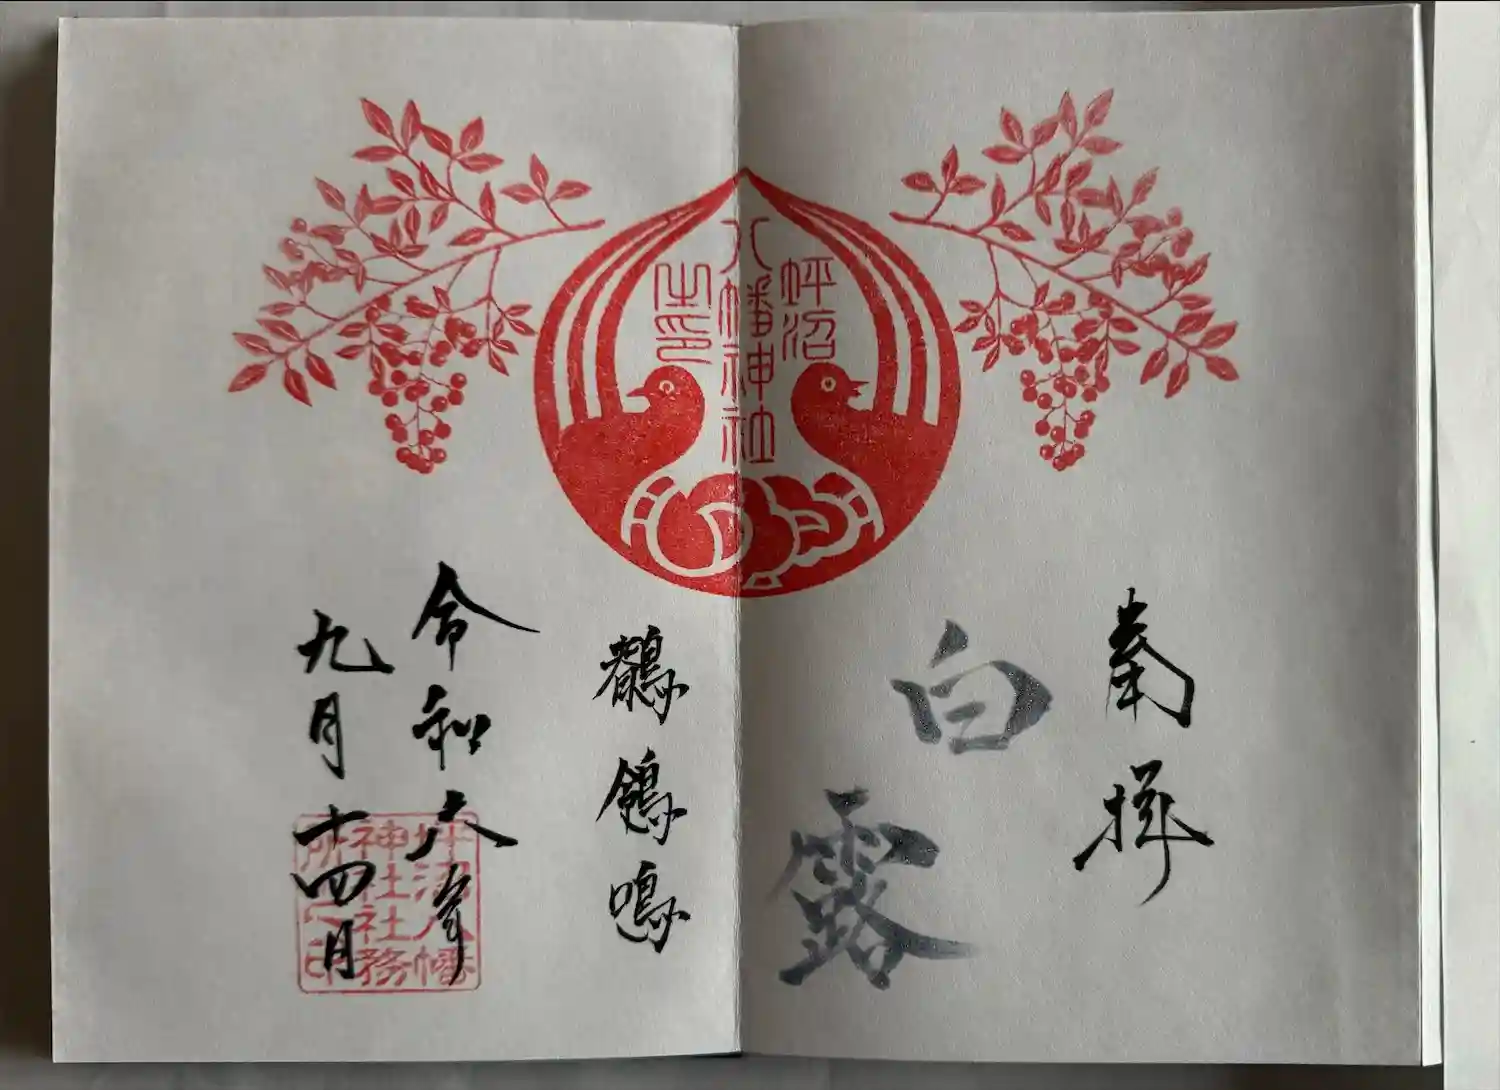 坪沼
八幡神社
之印
奉拝
白露
鶺鴒鳴
令和六年
九月十四日
坪沼八幡
神社社務
所之印